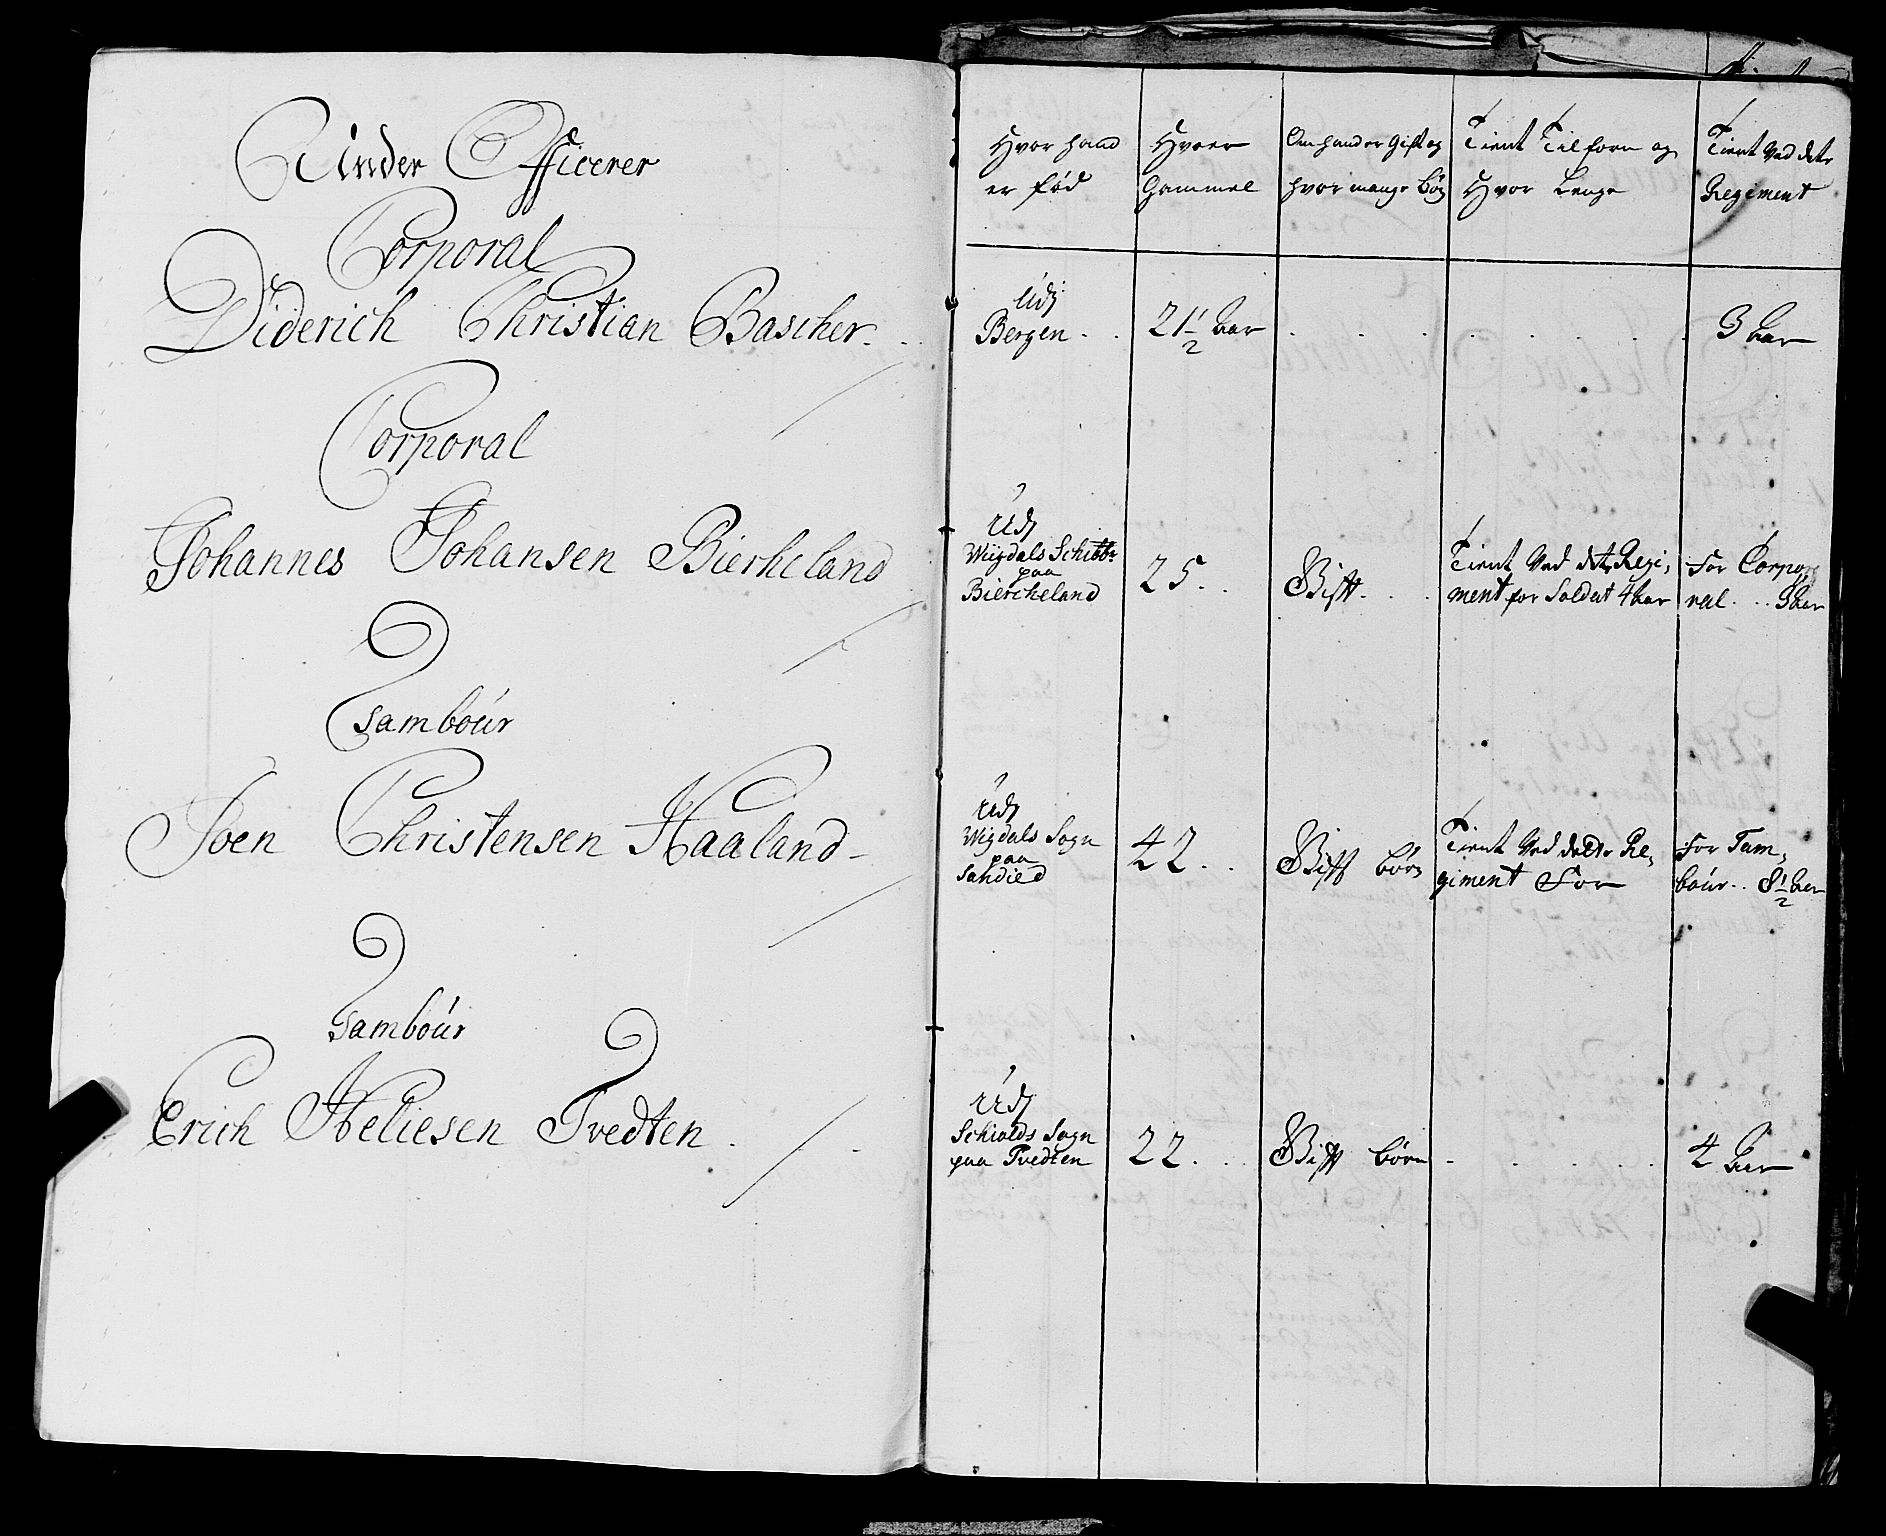 Under Officerer
Corporal
Diderich Christian Bascher
Corporal
Johannes Johansen Bierkeland
Tamboúr
Joen Christensen Haaland
Tamboúr
Erich Heliesen Tvedten
Hvor hand
er fød
Hvor
Gammel
Om hand er Gift og
hvor mange børn
Tient Tilforn og
Hvor Lenge
Tient Ved dette
Regiment
Udj
Bergen
21 1/2 Aar
3 Aar
Udj
Wigdals Schibbr
paa
Biercheland
25
Gift
Tient Ved dette Regi,
ment for Soldat 4 Aar
For Corpo,
ral 3 Aar
Udj
Wigdals Sogn
paa
Sandied
42
Gift børn
Tient Ved dette Re,
giment For
For Tam,
boúr 8 1/2 Aar
Udj
Schiolds Sogn
paa Tvedten
22
Gift børn
4 Aar